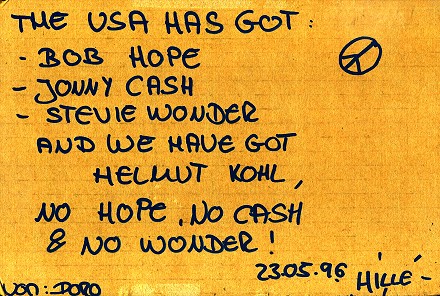 THE USA HAS GOT:
- BOB HOPE
- JONNY CASH
- STEVIE WONDER
AND WE HAVE GOT
HELMUT KOHL,
NO HOPE, NO CASH
& NO WONDER!
23.05.96 HILLÉ-
VON: DORO